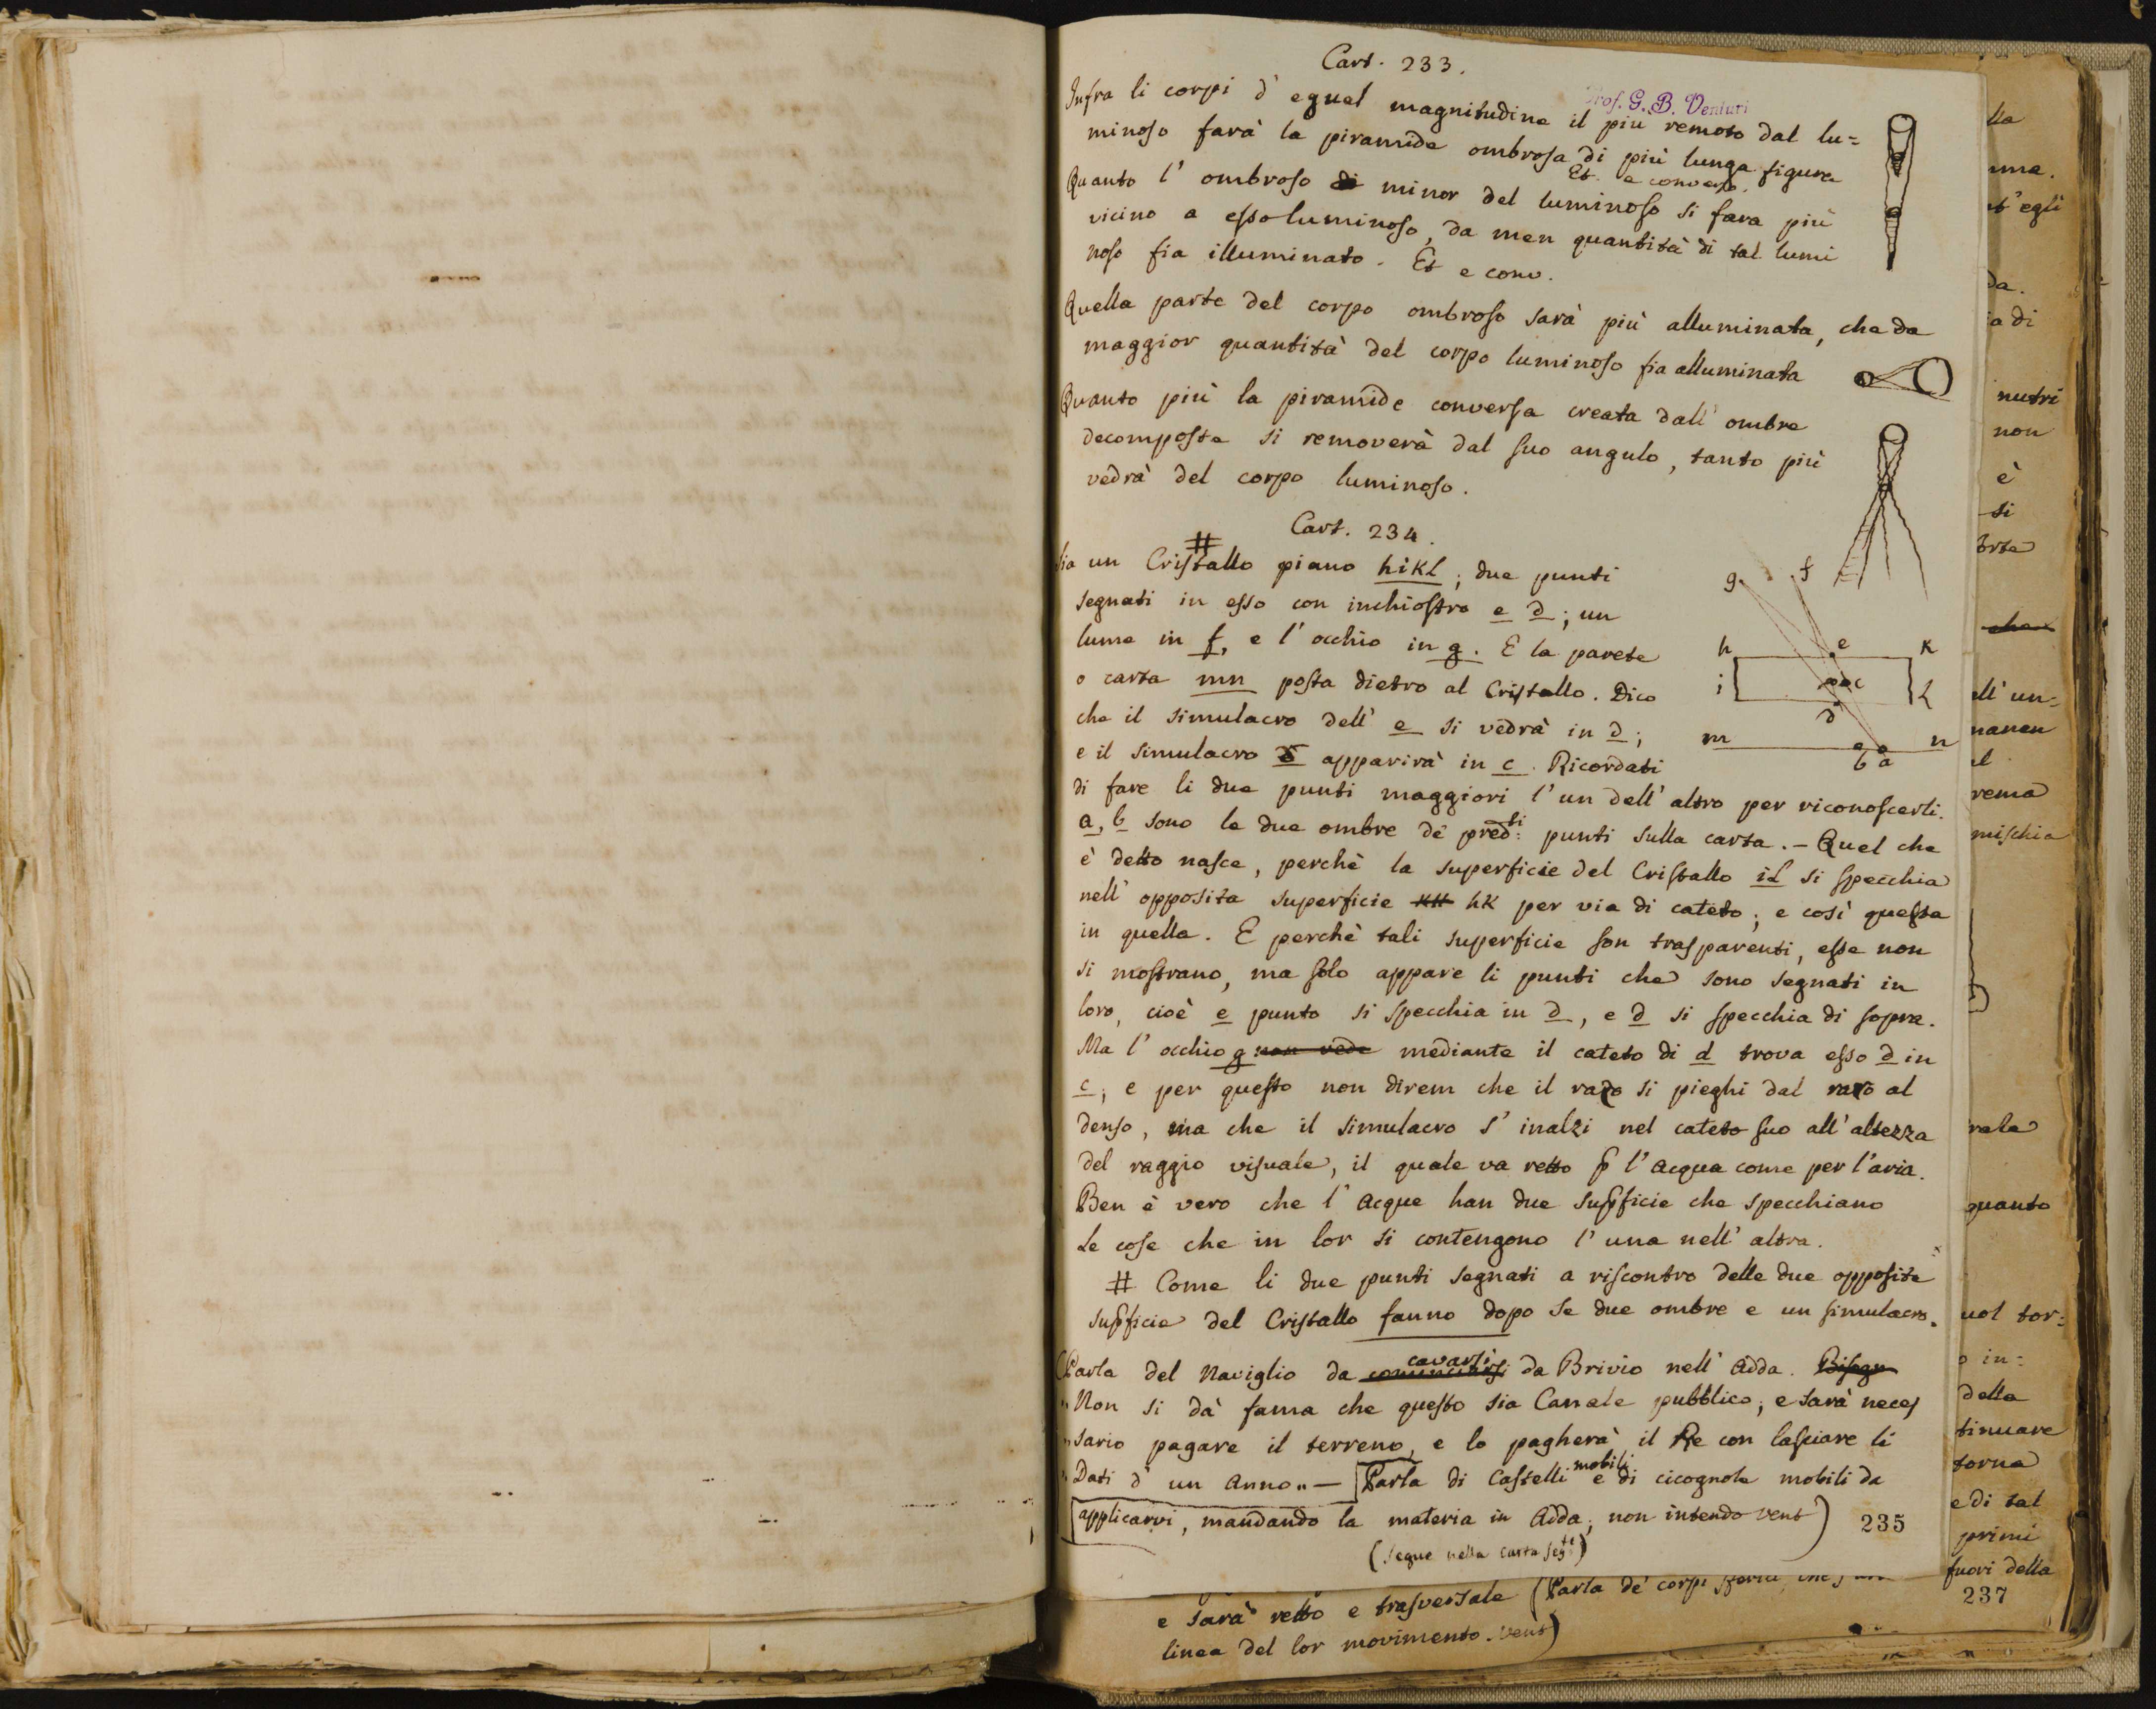 Cart. 233.
Prof. G. B. Venturi
Infra li corpi d' egual magnitudine il più remoto dal lu=
minoso farà la piramide ombrosa di più lunga figura
Et e converso.
Quanto l' ombroso di minor del luminoso si fara più
vicino a esso luminoso, da men quantità di tal lumi
noso fia illuminato. Et e conv.
Quella parte del corpo ombroso sarà più alluminata, che da
maggior quantità del corpo luminoso fia alluminata
Quanto più la piramide conversa creata dall' ombre
decomposte si removerà dal suo angulo, tanto più
vedrà del corpo luminoso.
Cart. 234.
#
Sia un Cristallo piano hikl; due punti
segnati in esso con inchiostro e d; un
lume in f, e l' occhio in g. E la parete
o carta mn posta dietro al Cristallo. Dico
che il simulacro dell' e si vedrà in d;
e il simulacro d apparirà in c. Ricordati
di fare li due punti maggiori l' un dell' altro per riconoscerli.
a, b sono le due ombre de' pred:ti punti sulla carta. - Quel che
è detto nasce, perchè la superficie del Cristallo il si specchia
nell' opposita superficie hk per via di cateto; e così questa
in quella. E perchè tali superficie son trasparenti, esse non
si mostrano, ma solo appare li punti che sono segnati in
loro, cioè e punto si specchia in d, e d si specchia di sopra.
Ma l' occhio g non vede mediante il cateto di d trova esso d in
c; e per questo non direm che il razo si pieghi dal raro al
denso, ma che il simulacro s' inalzi nel cateto suo all' altezza
del raggio visuale, il quale va retto p l' acqua come per l'aria.
Ben è vero che l' acque han due supficie che specchiano
le cose che in lor si contengono l' una nell' altra.
# Come li due punti segnati a riscontro delle due opposite
supficie del Cristallo fanno dopo se due ombre e un simulacro.
(Parla del Naviglio da cominciarsi cavarsi da Brivio nell' Adda. Bisogn
" Non si dà fama che questo sia Canale pubblico; e sarà neces
" sario pagare il terreno, e lo pagherà il Re con lasciare li
" Dati d' un anno " — Parla di Castelli mobili e di cicognole mobili da
applicarvi, mandando la materia in Adda; non intendo Vent)
235
(segue nella carta segte)
e sarà retto e trasversale (Parla de' corpi
linea del lor movimento. Vent)
g
f
h
e
k
i
c
l
d
m
n
b a
lla
da.
a di
nutri
non
è
si
che
ell' un=
nanen
el
rema
mischia
rale
quanto
uol tor=
o in=
della
tinuare
torna
e di tal
primi
fuori della
237